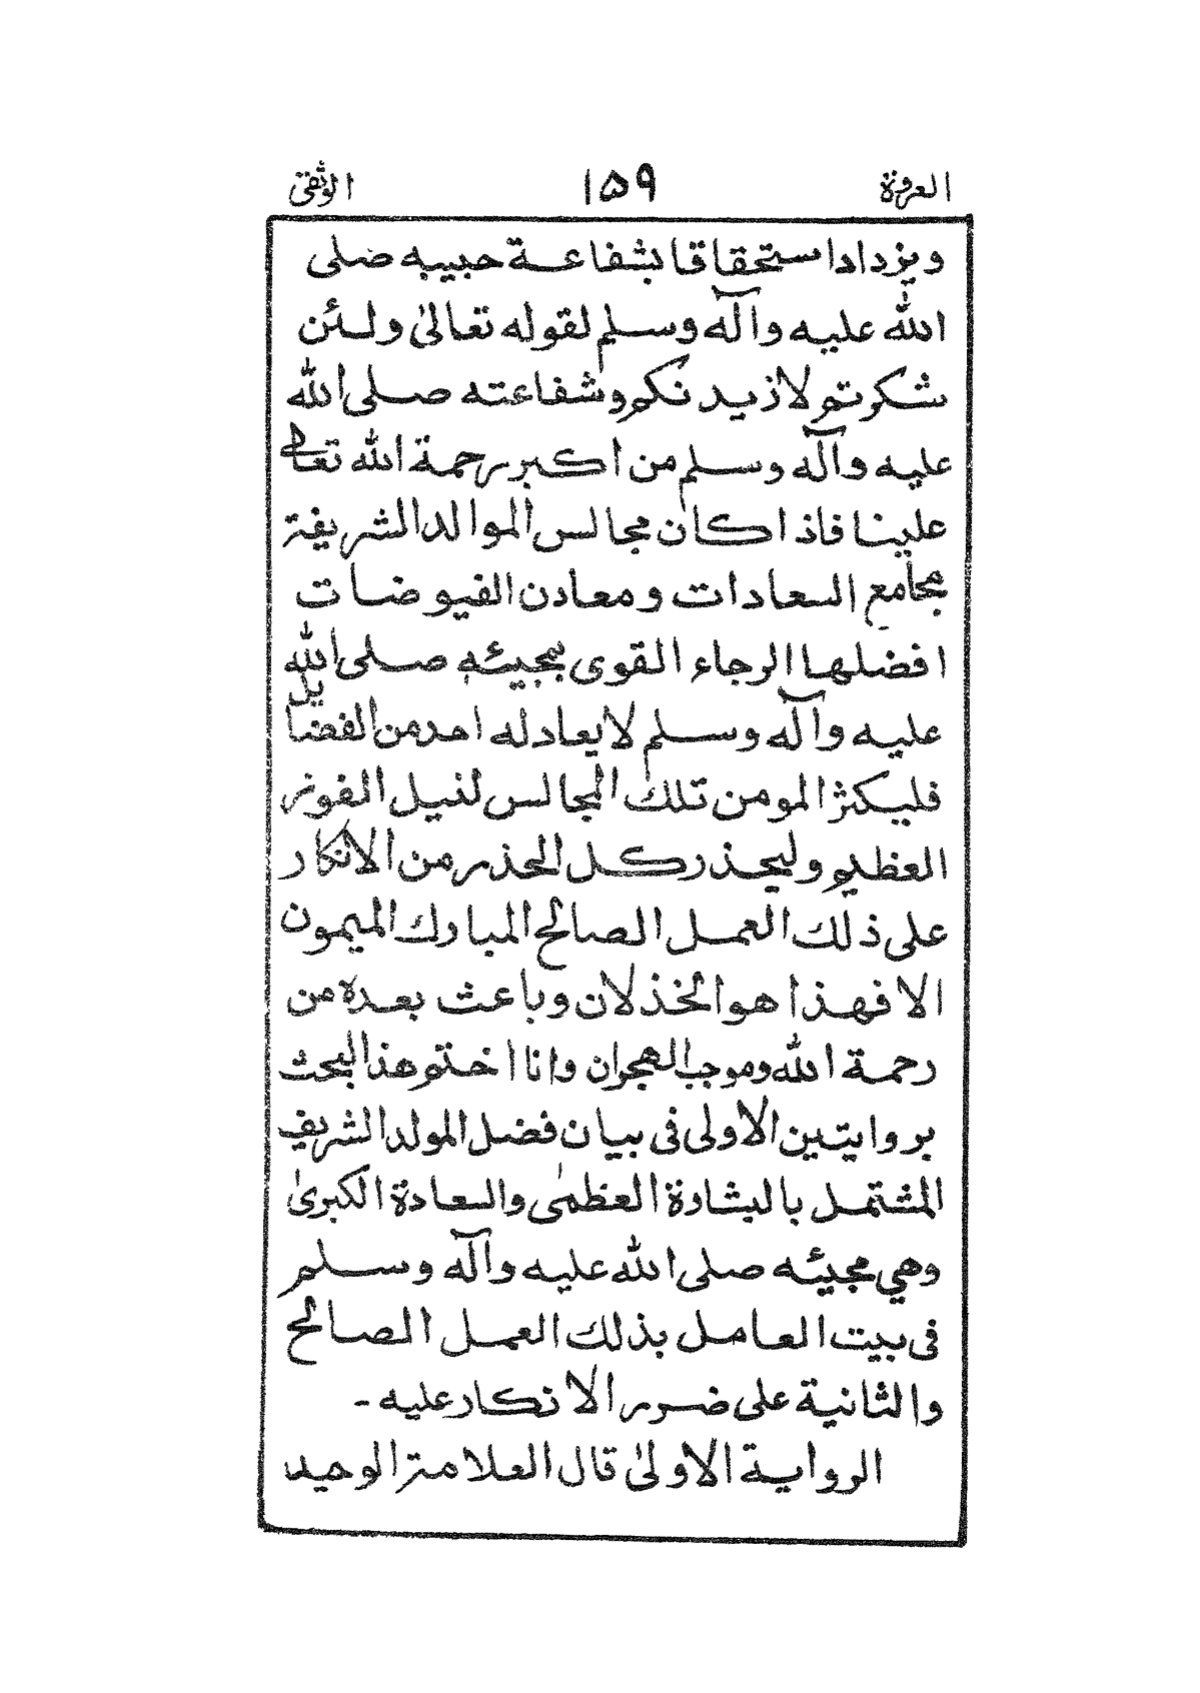 العروة ١٥٩ الوثقى
ويزداد استحقاقا بشفاعة حبيبه صلى
الله عليه وآله وسلم لقوله تعالىٰ ولئن
شكرتم لازيدنكم وشفاعته صلى الله
عليه وآله وسلم من اكبر رحمة الله تعالى
علينا فاذا كان مجالس الموالد الشريفة
مجامع السعادات ومعادن الفيوضات
افضلها الرجاء القوى بمجيئه صلى الله
عليه وآله وسلم لا يعادله احد من الفضايل
فليكثر المومن تلك المجالس لنيل الفوز
العظيم وليحذر كل الحذر من الانكار
على ذلك العمل الصالح المبارك الميمون
الا فهذا هو الخذلان وباعث بعده من
رحمة الله وموجب الهجران وانا اختم هذا البحث
بروايتين الاولى فى بيان فضل المولد الشريف
المشتمل بالبشارة العظمىٰ والسعادة الكبرىٰ
وهي مجيئه صلى الله عليه وآله وسلم
فى بيت العامل بذلك العمل الصالح
والثانية على ضرر الانكار عليه -
الرواية الاولىٰ قال العلامة الوحيد